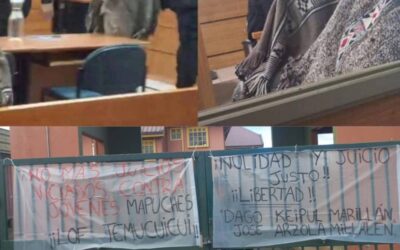 NO MAS JUICIOS
VICIADOS CONTRA
JOVENES MAPUCHES
¡¡LOF TEMUCUICUI!!
¡NULIDAD Y JUICIO
JUSTO!!
¡¡LIBERTAD!!
DAGO KEIPUL MARILLÁN
JOSE ARZOLA MILLALEN